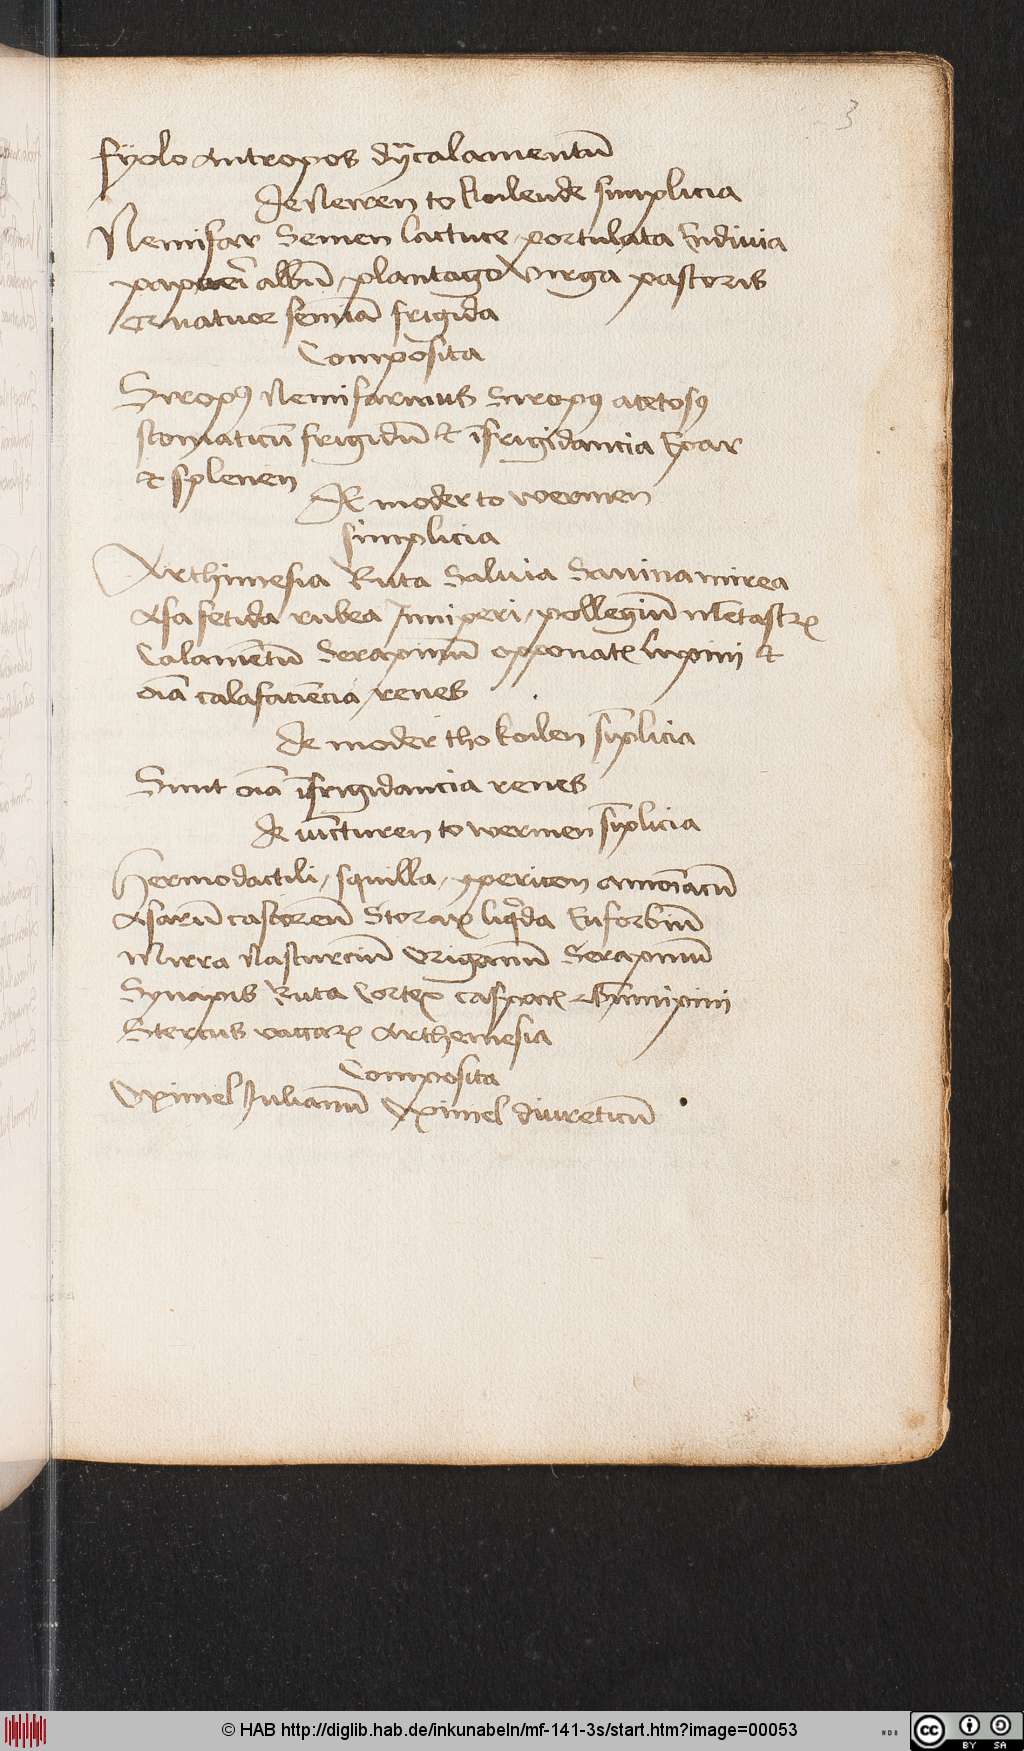 3
fyolo antropos dÿcalamentū
de Neiren to koilende simplicia
Nenufar Semen lactuce portulata Endivia
papaueris albū plantago virga pastoris
Quatuor semīa frigida
Composita
Sirop9 Nenufarinus Sirop9 acetos9
stomaticū frigidū et īfrigidancia Epar
et splenen
De moder to wermen
simplicia
Arthimesia Ruta Saluia Sauina mirea
Asa fetida rubea Juniperi pollegiū Mētastrꝝ
Calamētū Serapinū opponatꝝ lupini et
oīa calafaciēcia renes
de moder tho koilen sīplicia
Sunt oīa īfrigidancia renes
de iūcturen to wermen sīplicia
Hermodactili squilla ypericon amoīacū
Asarū castoreū Storax liqᷓda Euforbiū
Mirra Nasturciū Origanū Serapinū
Synapis Ruta Cortex
Stercus vaccarꝝ Arthemesia
Composita
Oximel Julianū Oximel diureticū
© HAB http://diglib.hab.de/inkunabeln/mf-141-3s/start.htm?image=00053
WDB
cc BY SA